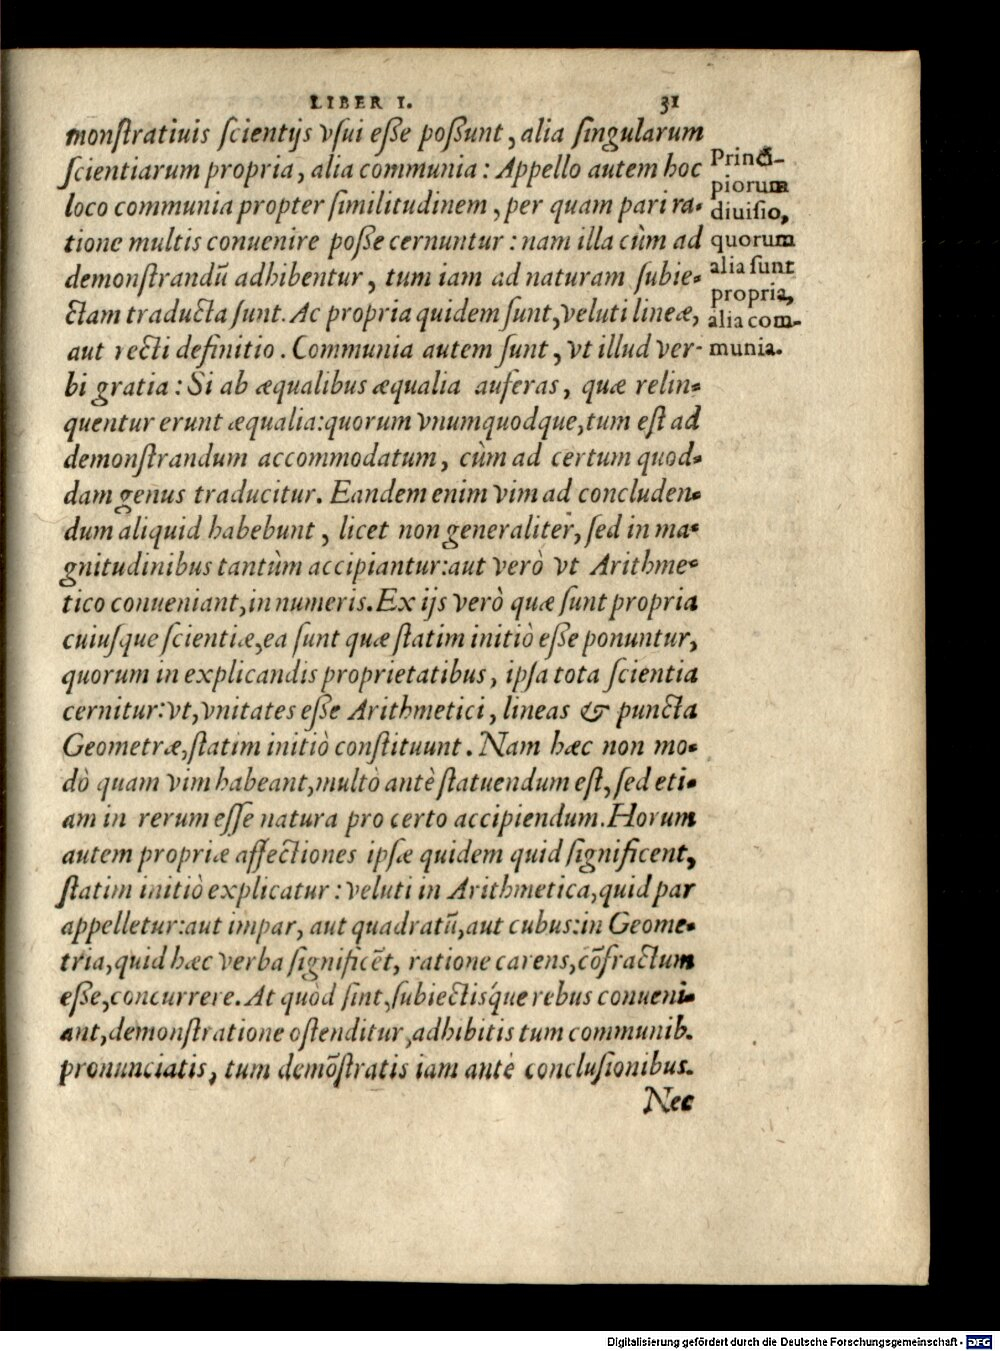 LIBER I. 31
monſtratiuis ſcientijs vſui eſſe poſſunt, alia ſingularum
ſcientiarum propria, alia communia: Appello autem hoc
loco communia propter ſimilitudinem, per quam pari ra-
tione multis conuenire poſſe cernuntur: nam illa cùm ad
demonſtrandū adhibentur, tum iam ad naturam ſubie-
ctam traducta ſunt. Ac propria quidem ſunt, veluti lineæ,
aut recti definitio. Communia autem ſunt, vt illud ver-
bi gratia: Si ab æqualibus æqualia auferas, quæ relin-
quentur erunt æqualia: quorum vnumquodque, tum eſt ad
demonſtrandum accommodatum, cùm ad certum quod-
dam genus traducitur. Eandem enim vim ad concluden-
dum aliquid habebunt, licet non generaliter, ſed in ma-
gnitudinibus tantùm accipiantur: aut verò vt Arithme-
tico conueniant, in numeris. Ex ijs verò quæ ſunt propria
cuiuſque ſcientiæ, ea ſunt quæ ſtatim initiò eſſe ponuntur,
quorum in explicandis proprietatibus, ipſa tota ſcientia
cernitur: vt, vnitates eſſe Arithmetici, lineas & puncta
Geometræ, ſtatim initiò conſtituunt. Nam hæc non mo-
dò quam vim habeant, multò antè ſtatuendum eſt, ſed eti-
am in rerum eſſe natura pro certo accipiendum. Horum
autem propriæ affectiones ipſæ quidem quid ſignificent,
ſtatim initiò explicatur: veluti in Arithmetica, quid par
appelletur: aut impar, aut quadratū, aut cubus: in Geome-
tria, quid hæc verba ſignificēt, ratione carens, cōfractum
eſſe, concurrere. At quòd ſint, ſubiectiſque rebus conueni-
ant, demonſtratione oſtenditur, adhibitis tum communib.
pronunciatis, tum demōſtratis iam antè concluſionibus.
Nec
Princi-
piorum
diuiſio,
quorum
alia ſunt
propria,
alia com-
munia.
Digitalisierung gefördert durch die Deutsche Forschungsgemeinschaft - DFG